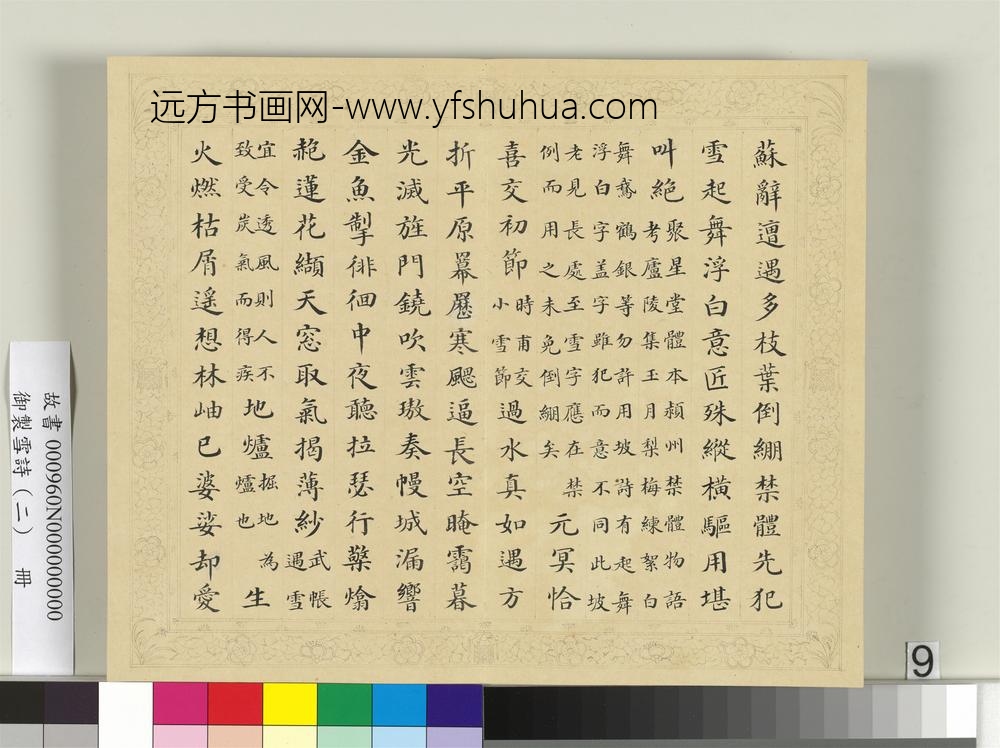 远方书画网-www.yfshuhua.com
蘇辭邅遇多枝葉倒綳禁體先犯
雪起舞浮白意匠殊縱橫驅用堪
叫絕
聚星堂體本潁州禁體物語
考廬陵集玉月梨梅練絮白
舞鵞鶴銀等勿許用坡詩有起舞
浮白字盖字雖犯而意不同此坡
老見長處至雪字應在禁
例而用之未免倒綳矣
元冥恰
喜交初節
時甫交
小雪節
過水真如遇方
折平原羃寒颸逼長空晻靄暮
光滅旌門鐃吹雲璈奏幔城漏響
金魚掣徘徊中夜聽拉瑟行檠熻
赩蓮花纈天窓取氣揭薄紗
武帳
遇雪
宜令透風則人不
致受炭氣而得疾
地爐
掘地為
爐也
生
火燃枯屑遥想林岫已婆娑却愛
故書 000960N000000000
御製雪詩(二) 冊
9